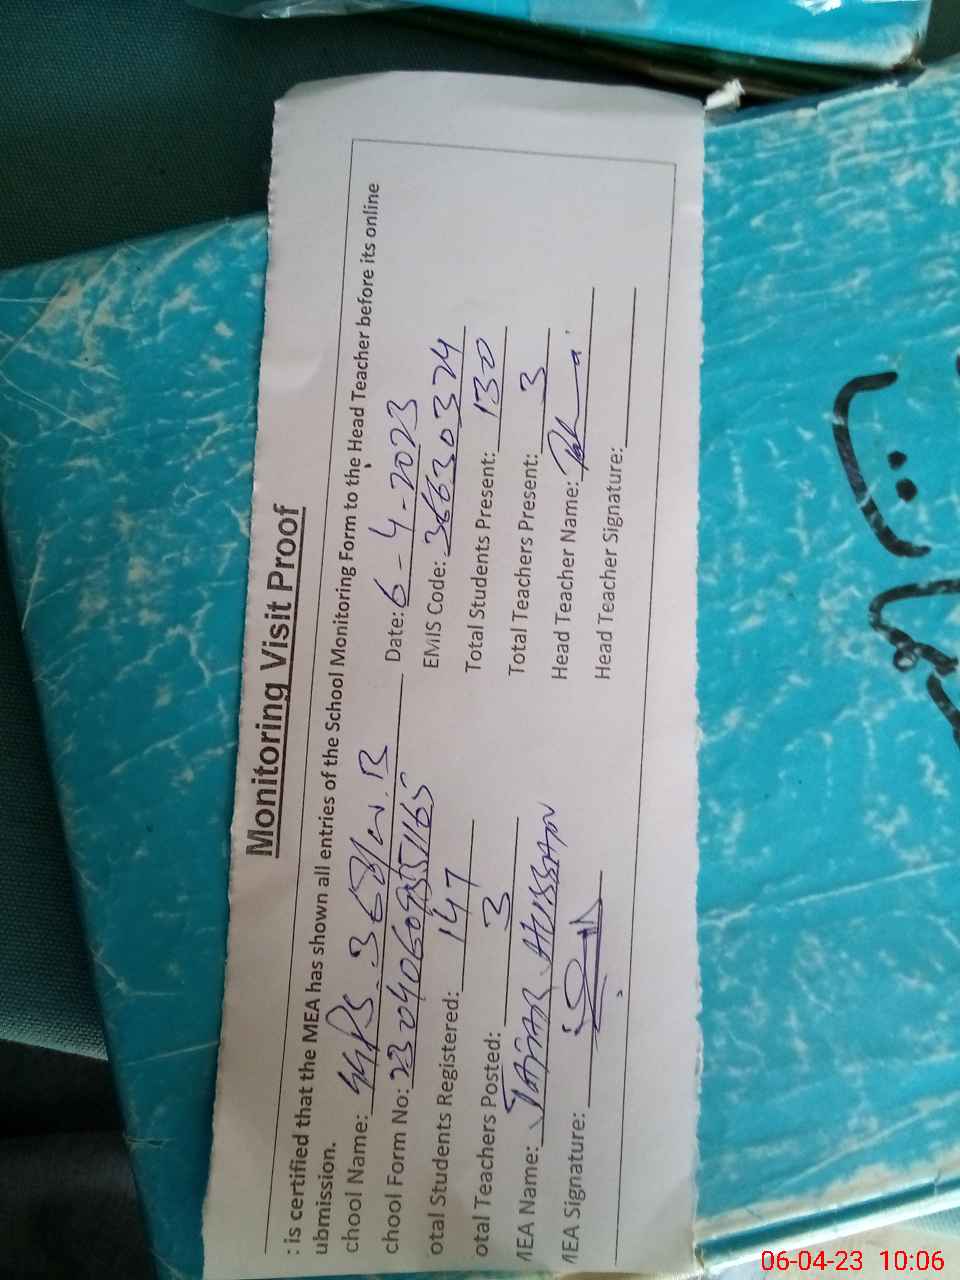 Monitoring Visit Proof
: is certified that the MEA has shown all entries of the School Monitoring Form to the Head Teacher before its online
ubmission.
chool Name: GGPS 368/W.B Date: 6-4-2023
chool Form No: EMIS Code: 36630324
otal Students Registered: 147 Total Students Present: 130
otal Teachers Posted: 3 Total Teachers Present: 3
MEA Name: JAFAR HUSSAIN Head Teacher Name:
MEA Signature: Head Teacher Signature:
06-04-23 10:06